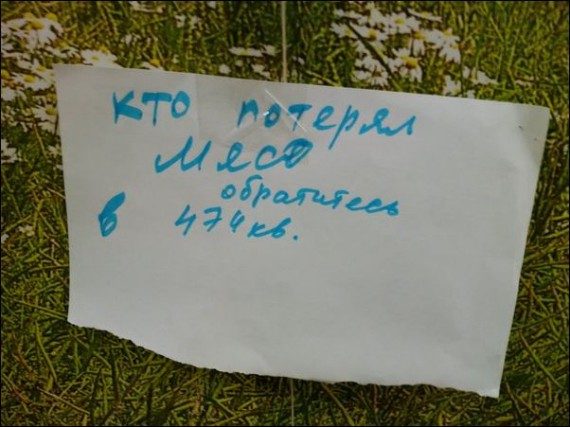 кто потерял
Мясо
обратитесь
в 474кв.